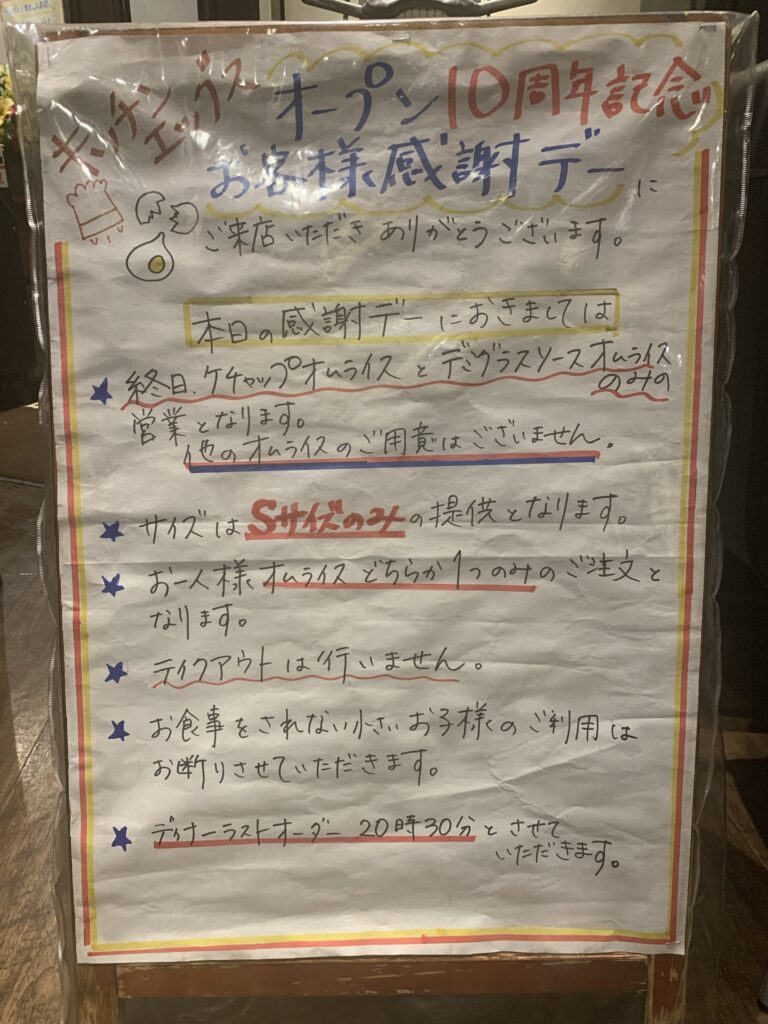 キッチン
エッグス
オープン10周年記念
お客様感謝デーに
ご来店いただき ありがとうございます。
本日の感謝デーにおきましては
★ 終日、ケチャップオムライスとデミグラスソースオムライス
のみの
営業となります。
他のオムライスのご用意はございません。
★ サイズはSサイズのみの提供となります。
★ お一人様オムライスどちらか1つのみのご注文と
なります。
★ テイクアウトは行いません。
★ お食事をされない小さいお子様のご利用は
お断りさせていただきます。
★ ディナーラストオーダー 20時30分とさせて
いただきます。